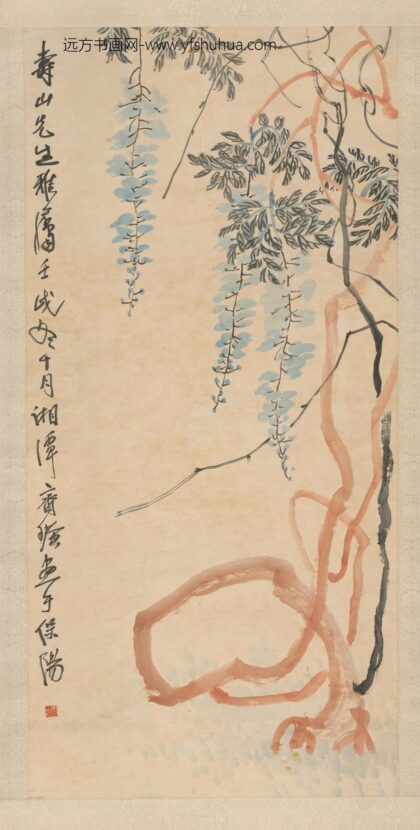 远方书画网-www.yfshuhua.com
寿山先生雅属壬戌冬十月湘潭齊璜画于保陽